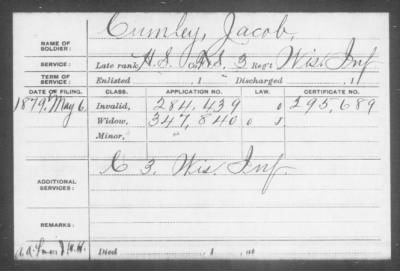 NAME OF SOLDIER: Cumley, Jacob,
SERVICE: Late rank, H.S. 3 Reg't Wis. Inf
TERM OF SERVICE: Enlisted , 1 Discharged , 1
DATE OF FILING. CLASS. APPLICATION NO. LAW. CERTIFICATE NO.
1879, May 6. Invalid, 284,439 295,689
Widow, 347,840
Minor,
ADDITIONAL SERVICES: 3 Wis. Inf.
REMARKS:
Died , 1 , at